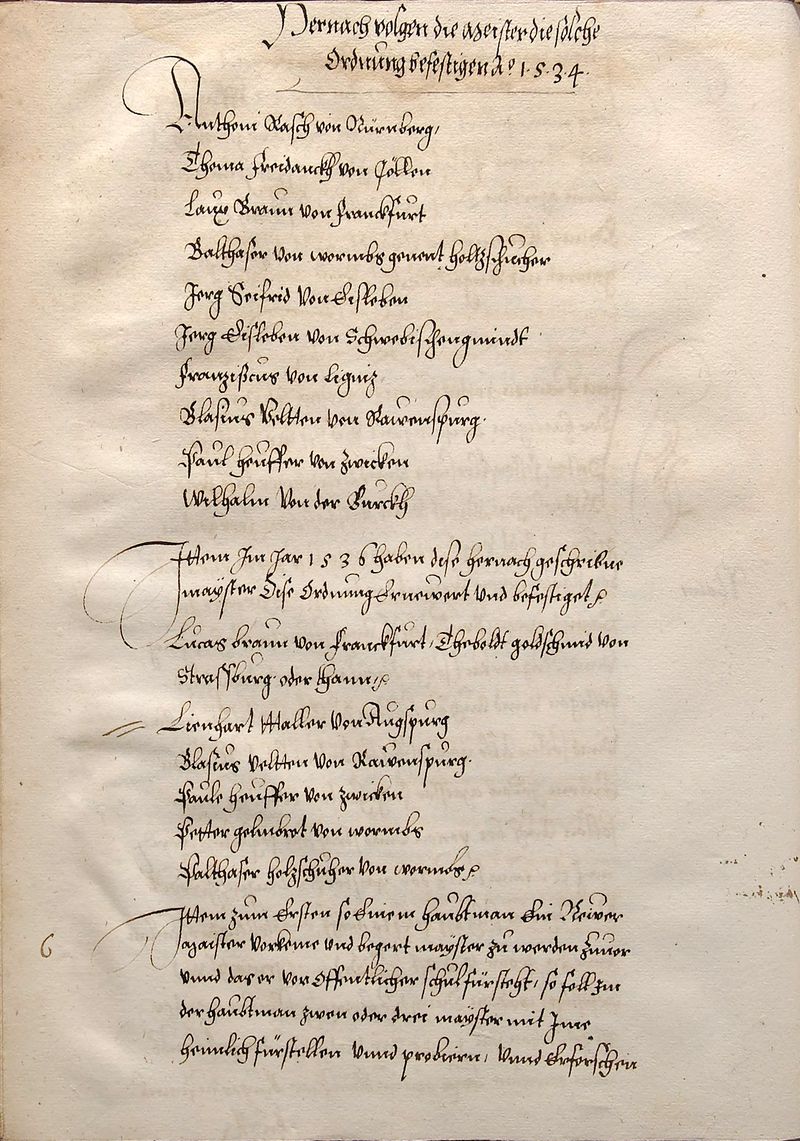 Hernach volgen die Meister die solche
Ordnung befestigen Aº 1·5·3·4·
Anthoni Rasch von Nürnberg,
Thoma Freidanckh von Cöllen
Laux Braun von Franckfurt
Balthaser von wormbs genent holtzschucher
Jerg Seifrid Von Eisleben
Jerg Eisleben von Schwebischengmündt
Franziscus von Ligniz
Blasius Veltten von Rawenspurg·
Paul heuffer von zwicken
Wilhalm Von der Burckh
Ittem Im Jar 1536 haben dise hernach geschribne
mayster Dise Ordnung Ernewert und befestiget
Lucas braun von Franckfurt, Theboldt goldschmid von
Strassburg oder thann,
Lienhart Haller von Augspurg
Blasius Veltten von Rawenspurg·
Paule heuffer von zwicken
Petter gelmbrot von wormbs
Balthaser holzschuher von wormbs
6 Ittem zum Ersten so Einem haubtman Ein Neiwer
Maister vorkeme und begert mayster zu werden zuuor
unnd das er vor Offentlicher schul fürsteht, so soll Im
der haubtman zwen oder drei mayster mit Ime
heimlich fürstellen unnd probiern, Unnd Erforschen